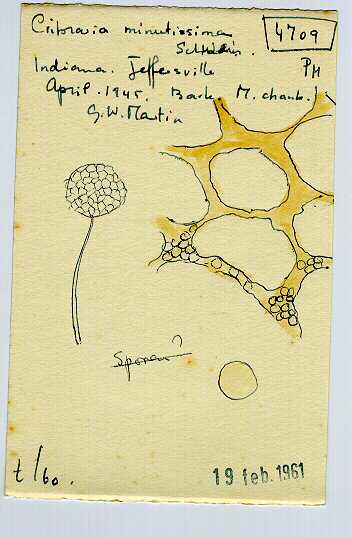 Cribraria minutissima
Schwein.
4709
Indiana. Jeffersville
PM
April. 1945. Bark. M. chamb.!
G.W. Martin
Sporen?
t/60.
19 feb. 1961